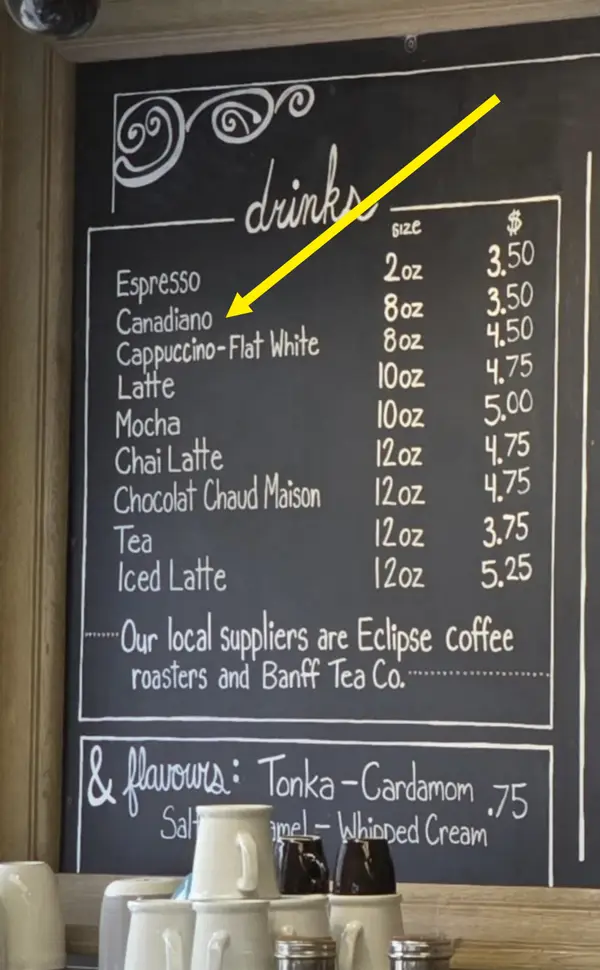 drinks
size $
Espresso 2oz 3.50
Canadiano 8oz 3.50
Cappuccino-Flat White 8oz 4.50
Latte 10oz 4.75
Mocha 10oz 5.00
Chai Latte 12oz 4.75
Chocolat Chaud Maison 12oz 4.75
Tea 12oz 3.75
Iced Latte 12oz 5.25
Our local suppliers are Eclipse coffee
roasters and Banff Tea Co.
& flavours: Tonka - Cardamom .75
Whipped Cream